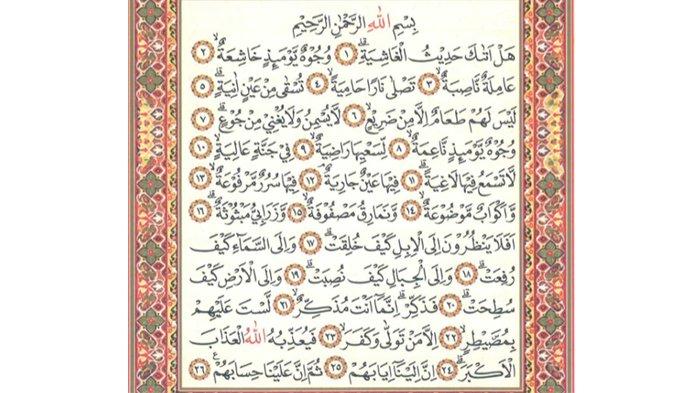 بِسْمِ اللهِ الرَّحْمٰنِ الرَّحِيْمِ
هَلْ اَتٰىكَ حَدِيْثُ الْغَاشِيَةِۗ ١ وُجُوْهٌ يَّوْمَىِٕذٍ خَاشِعَةٌۙ ٢
عَامِلَةٌ نَّاصِبَةٌۙ ٣ تَصْلٰى نَارًا حَامِيَةًۙ ٤ تُسْقٰى مِنْ عَيْنٍ اٰنِيَةٍۗ ٥
لَيْسَ لَهُمْ طَعَامٌ اِلَّا مِنْ ضَرِيْعٍۙ ٦ لَّا يُسْمِنُ وَلَا يُغْنِيْ مِنْ جُوْعٍۗ ٧
وُجُوْهٌ يَّوْمَىِٕذٍ نَّاعِمَةٌۙ ٨ لِّسَعْيِهَا رَاضِيَةٌۙ ٩ فِيْ جَنَّةٍ عَالِيَةٍۙ ١٠
لَّا تَسْمَعُ فِيْهَا لَاغِيَةًۗ ١١ فِيْهَا عَيْنٌ جَارِيَةٌۘ ١٢ فِيْهَا سُرُرٌ مَّرْفُوْعَةٌۙ ١٣
وَّاَكْوَابٌ مَّوْضُوْعَةٌۙ ١٤ وَّنَمَارِقُ مَصْفُوْفَةٌۙ ١٥ وَّزَرَابِيُّ مَبْثُوْثَةٌۗ ١٦
اَفَلَا يَنْظُرُوْنَ اِلَى الْاِبِلِ كَيْفَ خُلِقَتْۗ ١٧ وَاِلَى السَّمَاۤءِ كَيْفَ
رُفِعَتْۗ ١٨ وَاِلَى الْجِبَالِ كَيْفَ نُصِبَتْۗ ١٩ وَاِلَى الْاَرْضِ كَيْفَ
سُطِحَتْۗ ٢٠ فَذَكِّرْۗ اِنَّمَآ اَنْتَ مُذَكِّرٌۙ ٢١ لَّسْتَ عَلَيْهِمْ
بِمُصَيْطِرٍۙ ٢٢ اِلَّا مَنْ تَوَلّٰى وَكَفَرَۙ ٢٣ فَيُعَذِّبُهُ اللهُ الْعَذَابَ
الْاَكْبَرَۗ ٢٤ اِنَّ اِلَيْنَآ اِيَابَهُمْۙ ٢٥ ثُمَّ اِنَّ عَلَيْنَا حِسَابَهُمْ ࣖ ٢٦